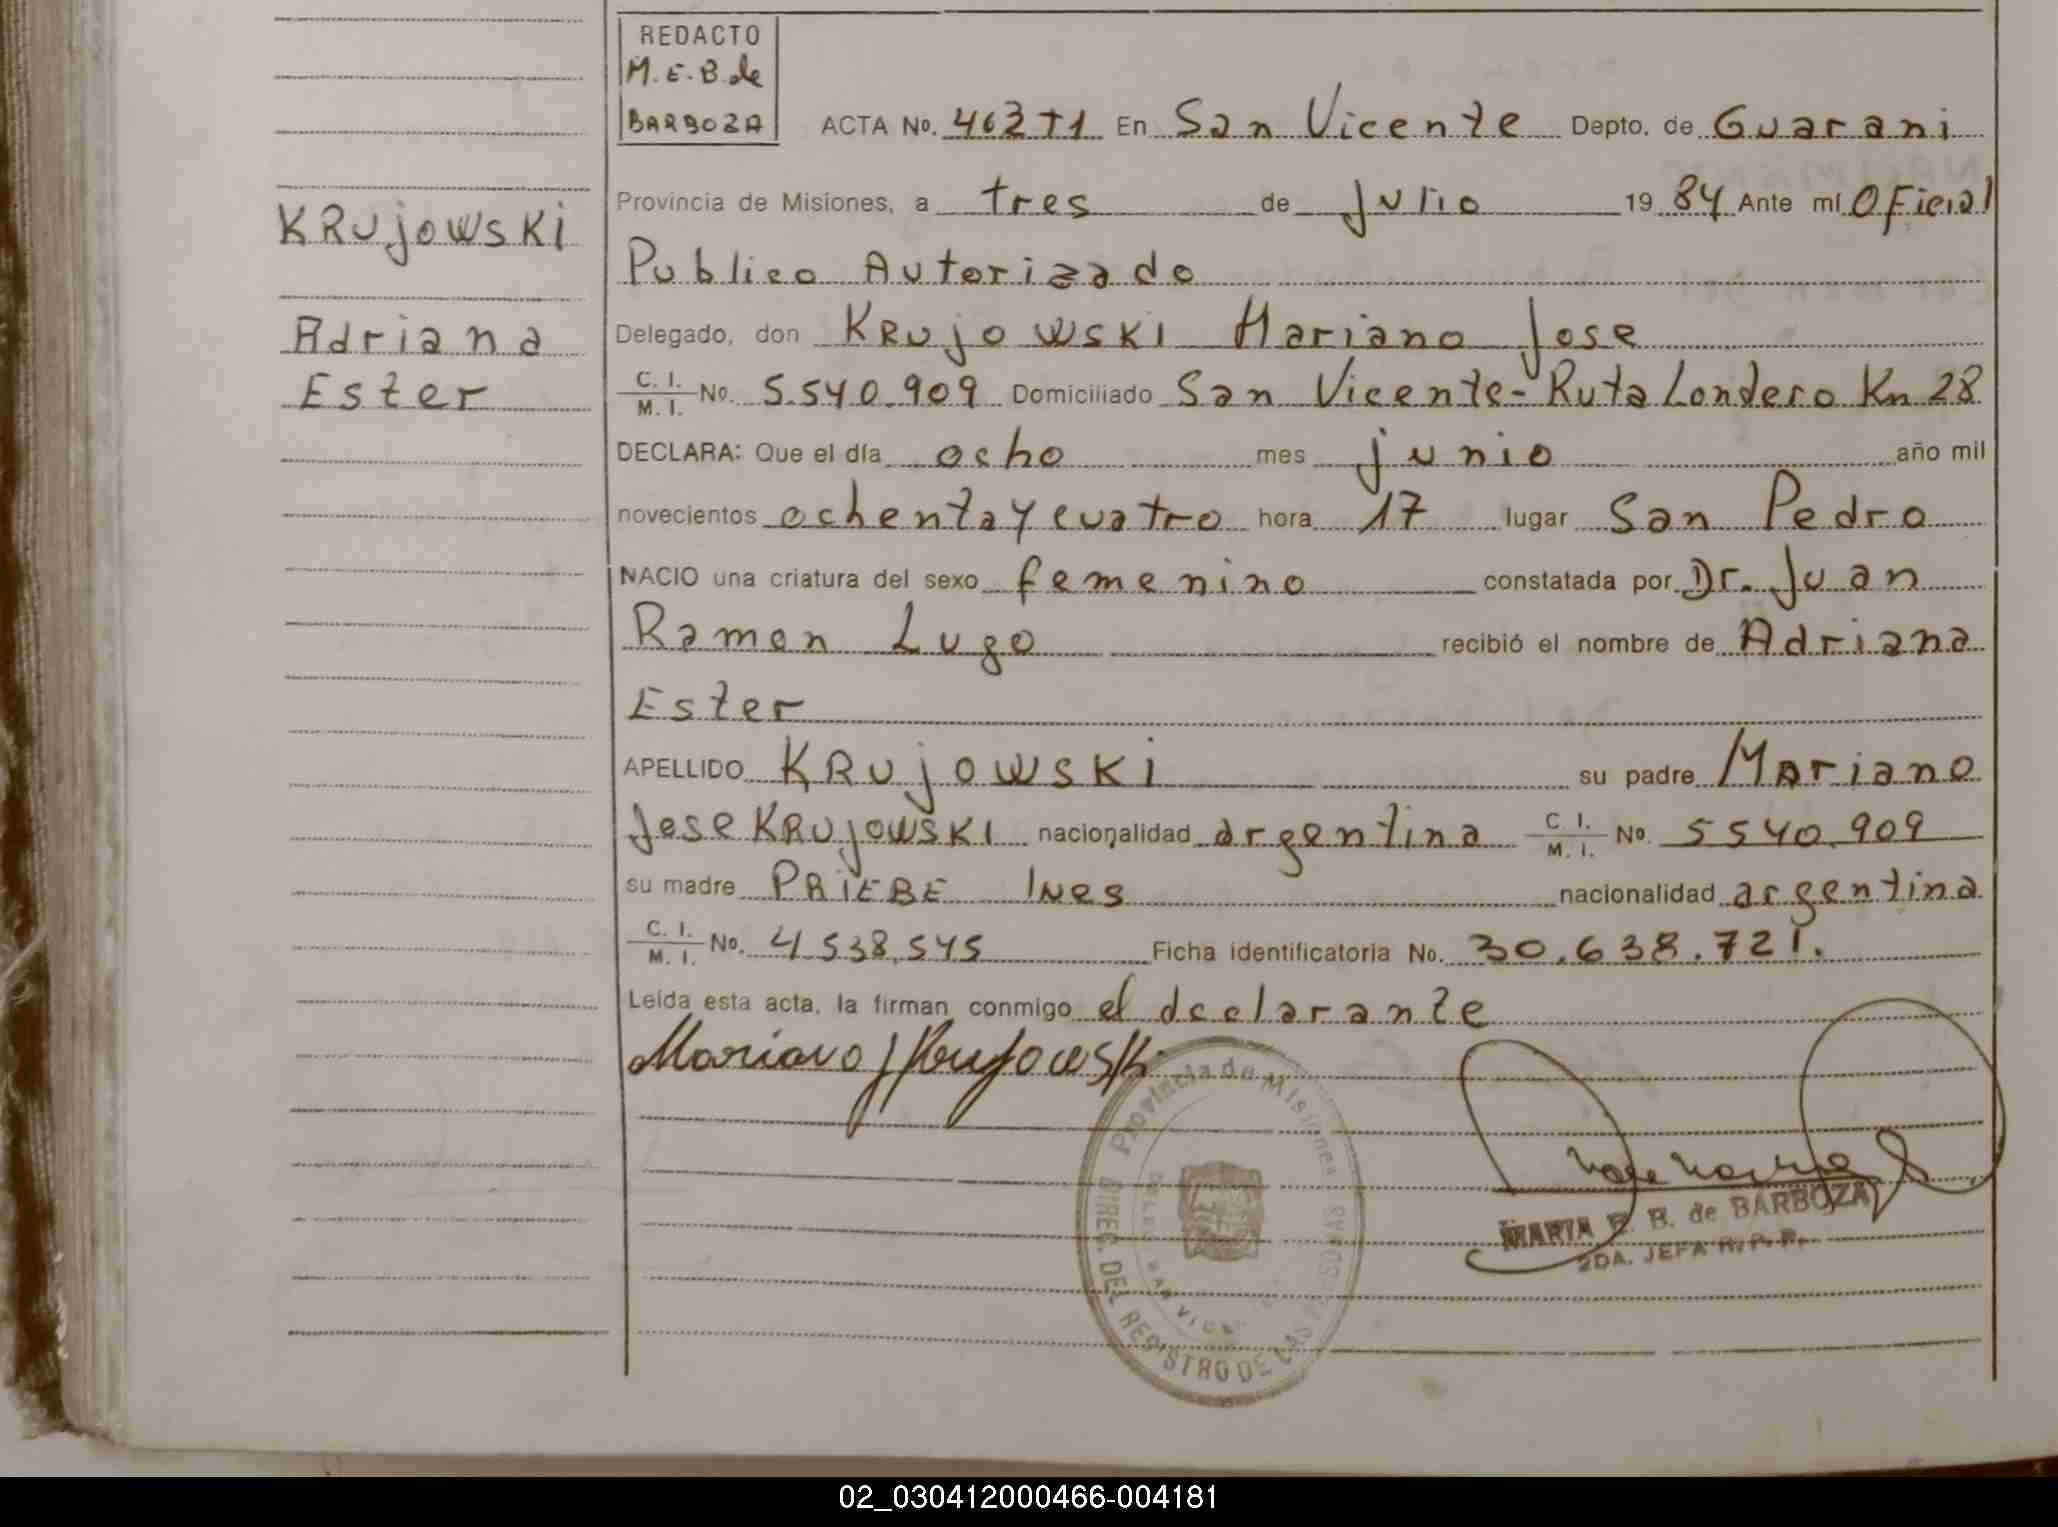 REDACTO
M.E.B. de
BARBOZA
ACTA No. 462 T1 En San Vicente Depto. de Guarani
Provincia de Misiones, a tres de Julio 19 84 Ante mí Oficial
Publico Autorizado
Delegado, don KRujowSKI Mariano Jose
C. I. / M. I. No. 5.540.909 Domiciliado San Vicente - Ruta Londero Km 28
DECLARA: Que el día ocho mes junio año mil
novecientos ochenta y cuatro hora 17 lugar San Pedro
NACIO una criatura del sexo femenino constatada por Dr. Juan
Ramon Lugo recibió el nombre de Adriana
Ester
APELLIDO KRujowSKi su padre Mariano
Jose KRujowSKI nacionalidad argentina C. I. / M. I. No. 5540.909
su madre PRiEBE INes nacionalidad argentina
C. I. / M. I. No. 4.538.545 Ficha identificatoria No. 30.638.721.
Leída esta acta, la firman conmigo el declarante
Mariano J Krujowski
KRujowSKi
Adriana
Ester
Provincia de Misiones
DIREC. DEL REGISTRO DE LAS PERSONAS
MARIA E. B. de BARBOZA
2DA. JEFA R. P. P.
02_030412000466-004181